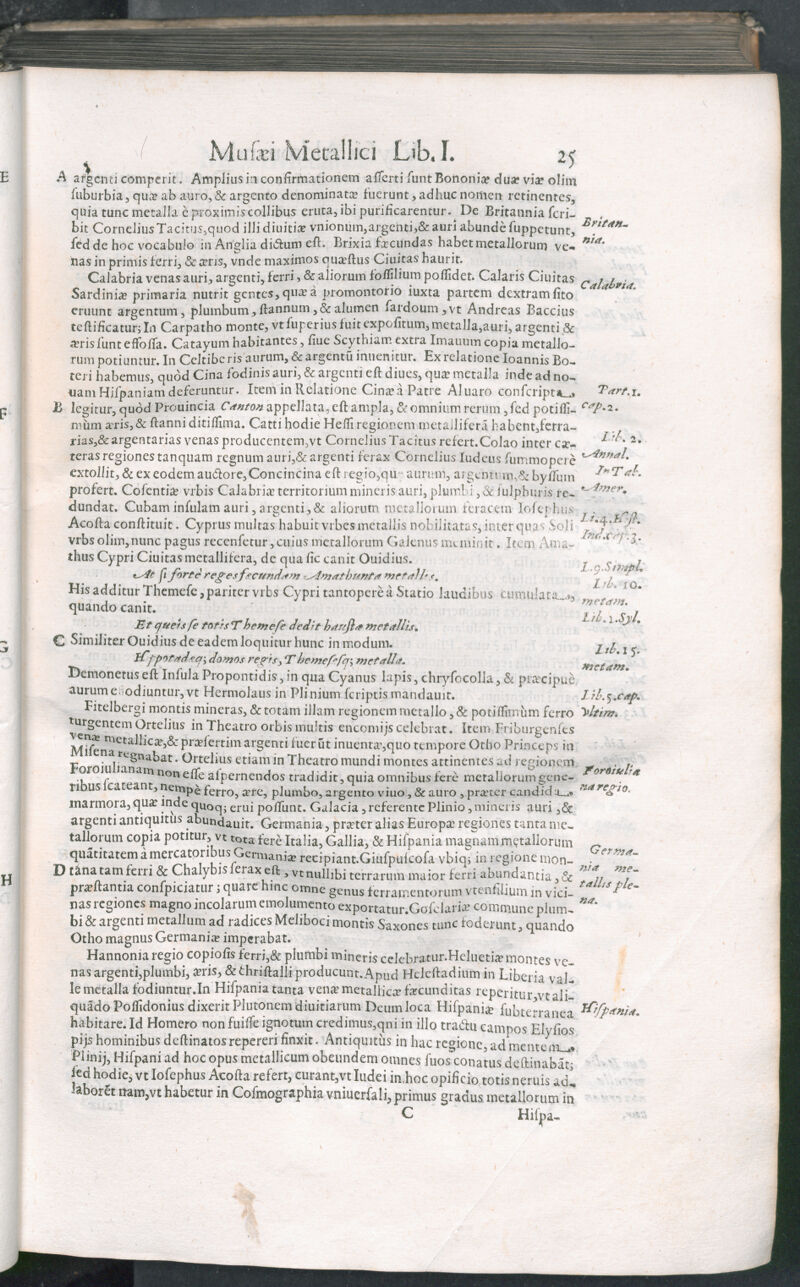 Musæi Metallici Lib. I. 25
A argenti comperit. Amplius in confirmationem asserti sunt Bononiæ duæ viæ olim
suburbia, quæ ab auro, & argento denominatæ fuerunt, adhuc nomen retinentes,
quia tunc metalla è proximis collibus eruta, ibi purificarentur. De Britannia scri-
bit Cornelius Tacitus, quod illi diuitiæ vnionum, argenti, & auri abundè suppetunt,
Britan-
nia.
sed de hoc vocabulo in Anglia dictum est. Brixia fæcundas habet metallorum ve-
nas in primis ferri, & æris, vnde maximos quæstus Ciuitas haurit.
Calabria venas auri, argenti, ferri, & aliorum fossilium possidet. Calaris Ciuitas
Calabria.
Sardiniæ primaria nutrit gentes, quæ à promontorio iuxta partem dextram sito
eruunt argentum, plumbum, stannum, & alumen sardoum, vt Andreas Baccius
testificatur; In Carpatho monte, vt superius fuit expositum, metalla, auri, argenti &
æris sunt effossa. Catayum habitantes, siue Scythiam extra Imauum copia metallo-
rum potiuntur. In Celtiberis aurum, & argentũ inuenitur. Ex relatione Ioannis Bo-
teri habemus, quòd Cina fodinis auri, & argenti est diues, quæ metalla inde ad no-
uam Hispaniam deferuntur. Item in Relatione Cinæ à Patre Aluaro conscripta
Part. 1.
B legitur, quòd Prouincia Canton appellata, est ampla, & omnium rerum, sed potissi-
cap. 2.
mùm æris, & stanni ditissima. Catti hodie Hessi regionem metalliferã habent, ferra-
rias, & argentarias venas producentem, vt Cornelius Tacitus refert. Colao inter cæ-
Lib. 2.
teras regiones tanquam regnum auri, & argenti ferax Cornelius Iudeus summopere
Annal.
extollit, & ex eodem auctore, Concincina est regio, quæ aurum, argentum, & byssum
In Tab.
profert. Cosentiæ vrbis Calabriæ territorium mineris auri, plumbi, & sulphuris re-
Amer.
dundat. Cubam insulam auri, argenti, & aliorum metallorum feracem Iosephus
Acosta constituit. Cyprus multas habuit vrbes metallis nobilitatas, inter quas Soli
Li. 4. Hist.
vrbs olim, nunc pagus recensetur, cuius metallorum Galenus meminit. Item Ama-
Ind. cap. 3.
thus Cypri Ciuitas metallifera, de qua sic canit Ouidius.
L. 9. Simpl.
At si fortè reges fæcundam Amathunta metallis.
Lib. 10.
His additur Themese, pariter vrbs Cypri tantoperè à Statio laudibus cumulata,
metam.
quando canit.
Et queis se totis Themese dedit hausta metallis.
Lib. 1. Syl.
C Similiter Ouidius de eadem loquitur hunc in modum.
Hippotadæq; domos regis, Themesesq; metalla.
Lib. 15.
metam.
Demonetus est Insula Propontidis, in qua Cyanus lapis, chrysocolla, & præcipuè
aurum effodiuntur, vt Hermolaus in Plinium scriptis mandauit.
Lib. 5. cap.
vltim.
Fitelbergi montis mineras, & totam illam regionem metallo, & potissimùm ferro
turgentem Ortelius in Theatro orbis multis encomijs celebrat. Item Friburgenses
venæ metallicæ, & præsertim argenti fuerũt inuentæ, quo tempore Otho Princeps in
Misena regnabat. Ortelius etiam in Theatro mundi montes attinentes ad regionem
Foroiulianam non esse aspernendos tradidit, quia omnibus ferè metallorum gene-
Foroiulia
na regio.
ribus scateant, nempè ferro, ære, plumbo, argento viuo, & auro, præter candida
marmora, quæ inde quoq; erui possunt. Galacia, referente Plinio, mineris auri, &
argenti antiquitùs abundauit. Germania, præter alias Europæ regiones tanta me-
tallorum copia potitur, vt tota ferè Italia, Gallia, & Hispania magnam metallorum
quãtitatem à mercatoribus Germaniæ recipiant. Giuspulcosa vbiq; in regione mon-
Germa-
nia me-
tallis ple-
na.
D tana tam ferri & Chalybis ferax est, vt nullibi terrarum maior ferri abundantia, &
præstantia conspiciatur; quare hinc omne genus ferramentorum vtensilium in vici-
nas regiones magno incolarum emolumento exportatur. Goslariæ commune plum-
bi & argenti metallum ad radices Meliboci montis Saxones tunc foderunt, quando
Otho magnus Germaniæ imperabat.
Hannonia regio copiosis ferri, & plumbi mineris celebratur. Heluetiæ montes ve-
nas argenti, plumbi, æris, & Christalli producunt. Apud Helestadium in Liberia val-
le metalla fodiuntur. In Hispania tanta venæ metallicæ fæcunditas reperitur, vt ali-
quãdo Possidonius dixerit Plutonem diuitiarum Deum loca Hispaniæ subterranea
Hispania.
habitare. Id Homero non fuisse ignotum credimus, qui in illo tractu campos Elysios
pijs hominibus destinatos reperiri finxit. Antiquitùs in hac regione, ad mentem
Plinij, Hispani ad hoc opus metallicum obeundem omnes suos conatus destinabãt;
sed hodie, vt Iosephus Acosta refert, curant, vt Iudei in hoc opificio totis neruis ad-
laborẽt nam, vt habetur in Cosmographia vniuersali, primus gradus metallorum in
C Hispa-